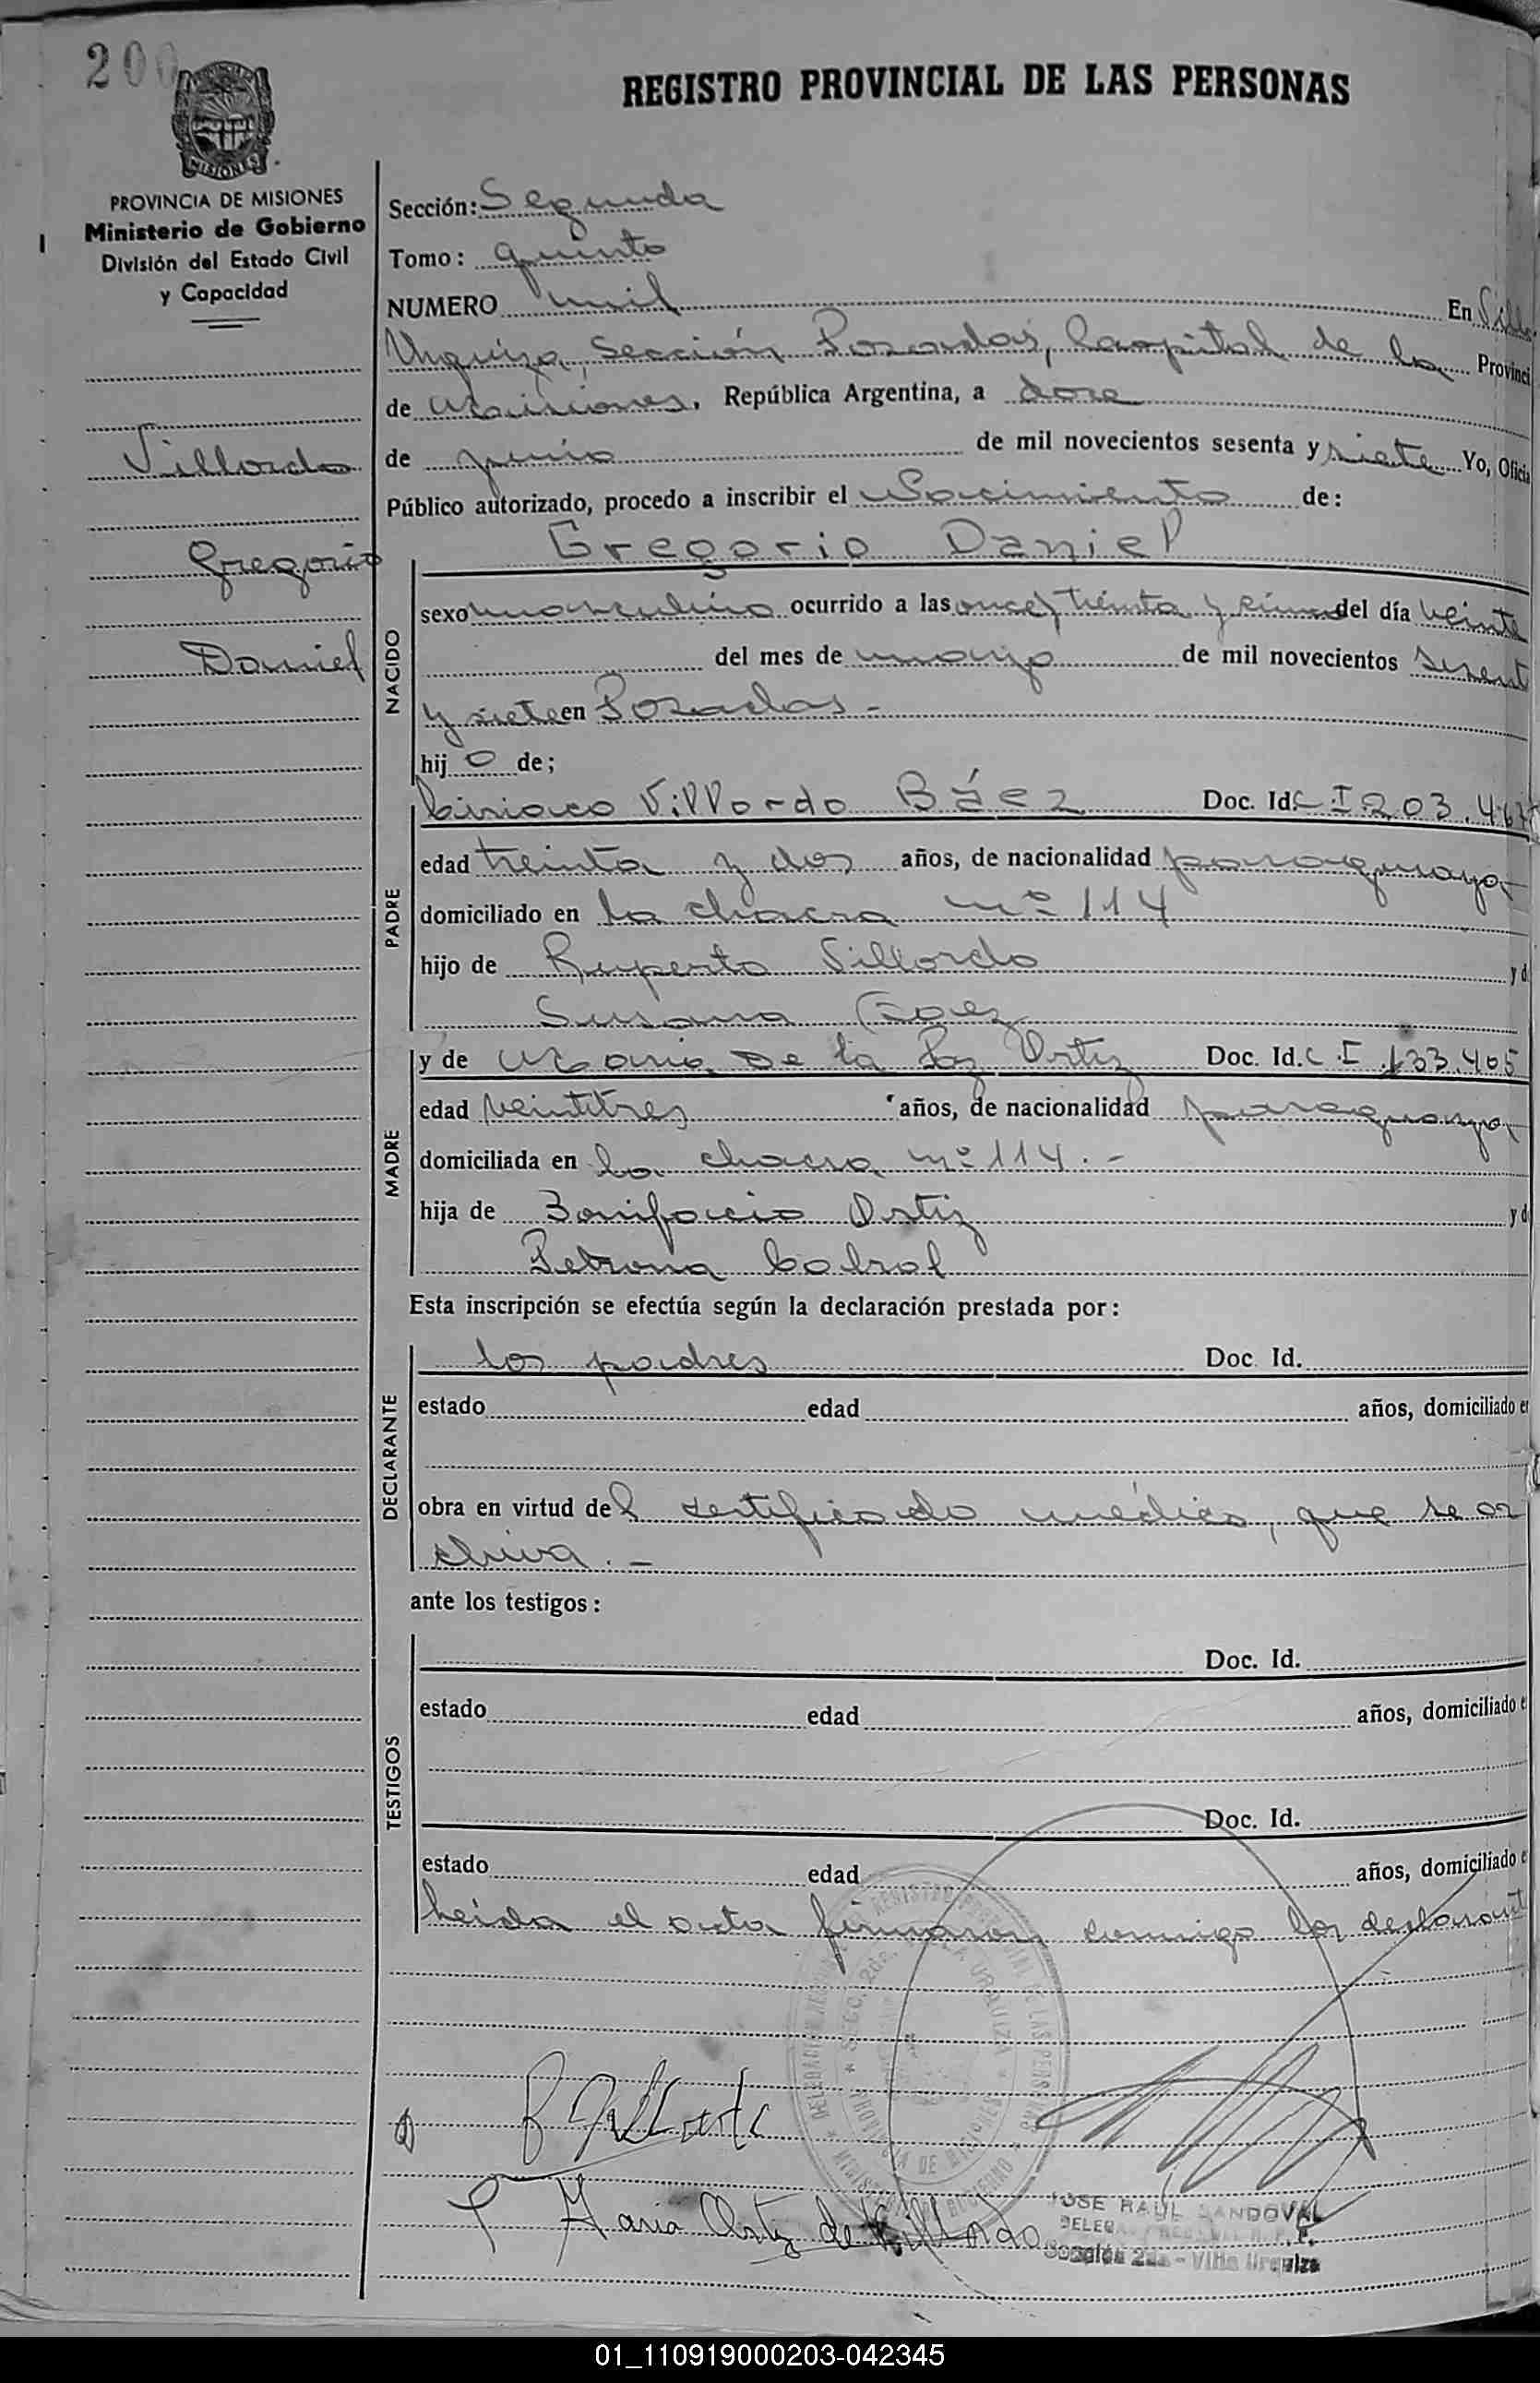 200
REGISTRO PROVINCIAL DE LAS PERSONAS
MISIONES
PROVINCIA DE MISIONES
Ministerio de Gobierno
División del Estado Civil
y Capacidad
Villordo
Gregorio
Daniel
Sección: Segunda
Tomo: quinto
NUMERO mil En Villa
Urquiza, Sección Posadas, Capital de la Provinci
de Misiones, República Argentina, a doce
de junio de mil novecientos sesenta y siete Yo, Oficia
Público autorizado, procedo a inscribir el Nacimiento de:
NACIDO
Gregorio Daniel
sexo masculino ocurrido a las once y treinta y cinco del día veinte
del mes de mayo de mil novecientos sesent
y siete en Posadas -
hij o de;
PADRE
Ciriaco Villordo Báez Doc. Id. C I 203.467
edad treinta y dos años, de nacionalidad paraguaya
domiciliado en la chacra nº 114
hijo de Ruperto Villordo y d
Susana Baez
MADRE
y de María De la Paz Ortiz Doc. Id. C.I. 133.405
edad veintitres años, de nacionalidad paraguaya
domiciliada en la chacra nº 114. -
hija de Bonifacio Ortiz y d
Petrona Cabral
Esta inscripción se efectúa según la declaración prestada por:
DECLARANTE
los padres Doc. Id.
estado edad años, domiciliado e
obra en virtud del certificado médico, que se ar
chiva. -
ante los testigos:
TESTIGOS
Doc. Id.
estado edad años, domiciliado e
Doc. Id.
estado edad años, domiciliado e
Leída el acta firmaron conmigo los declarant
María Ortiz de Villordo
JOSE RAUL SANDOVAL
Sección 2da - Villa Urquiza
01_110919000203-042345